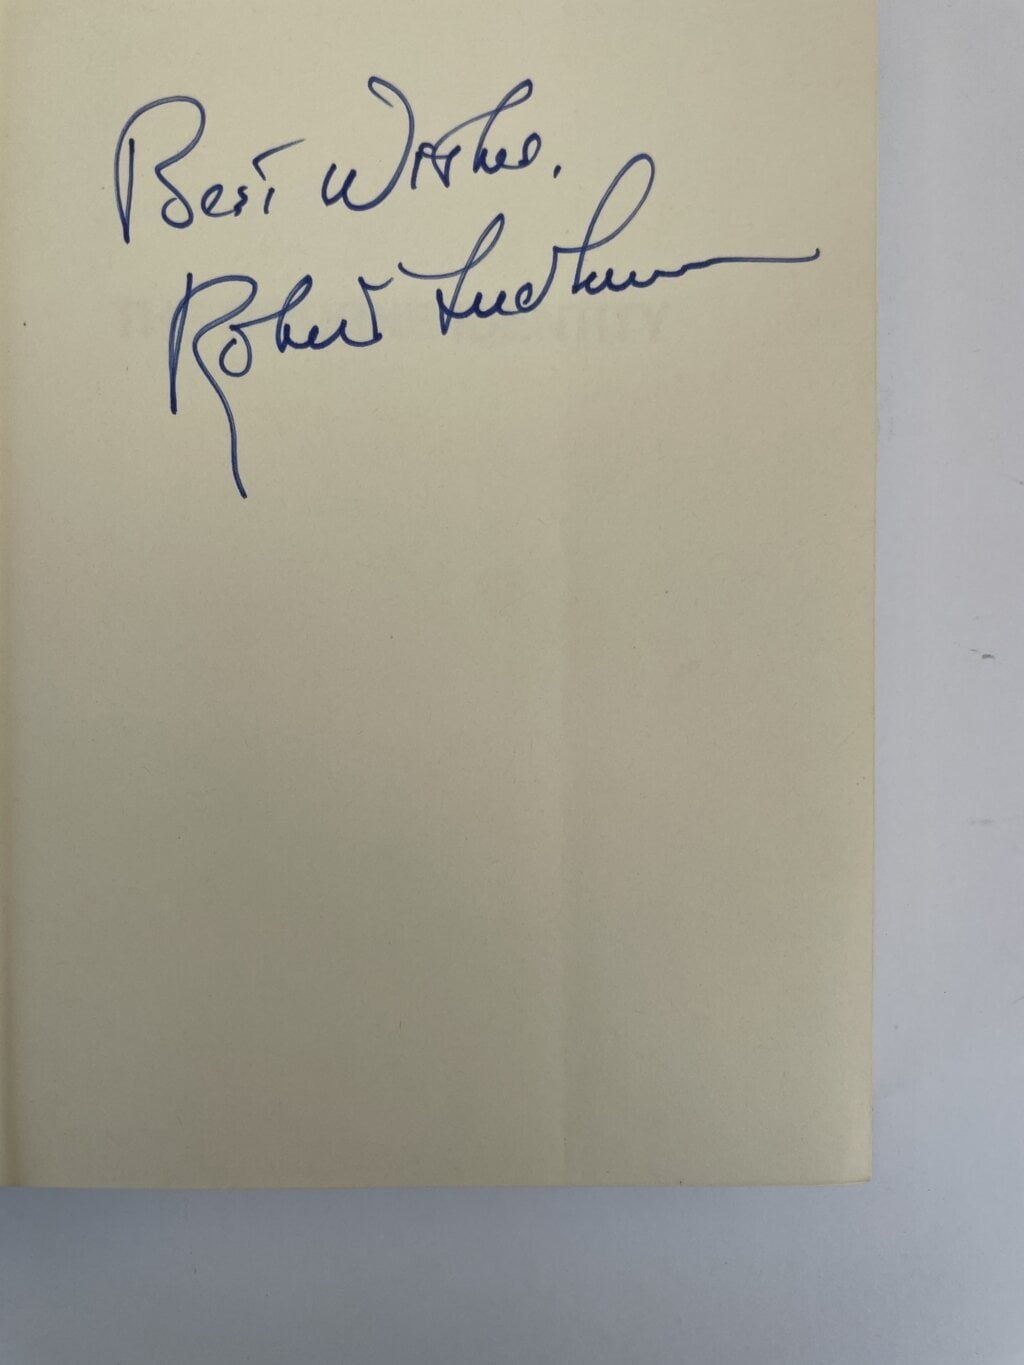 Best Wishes,
Robert Ludlum